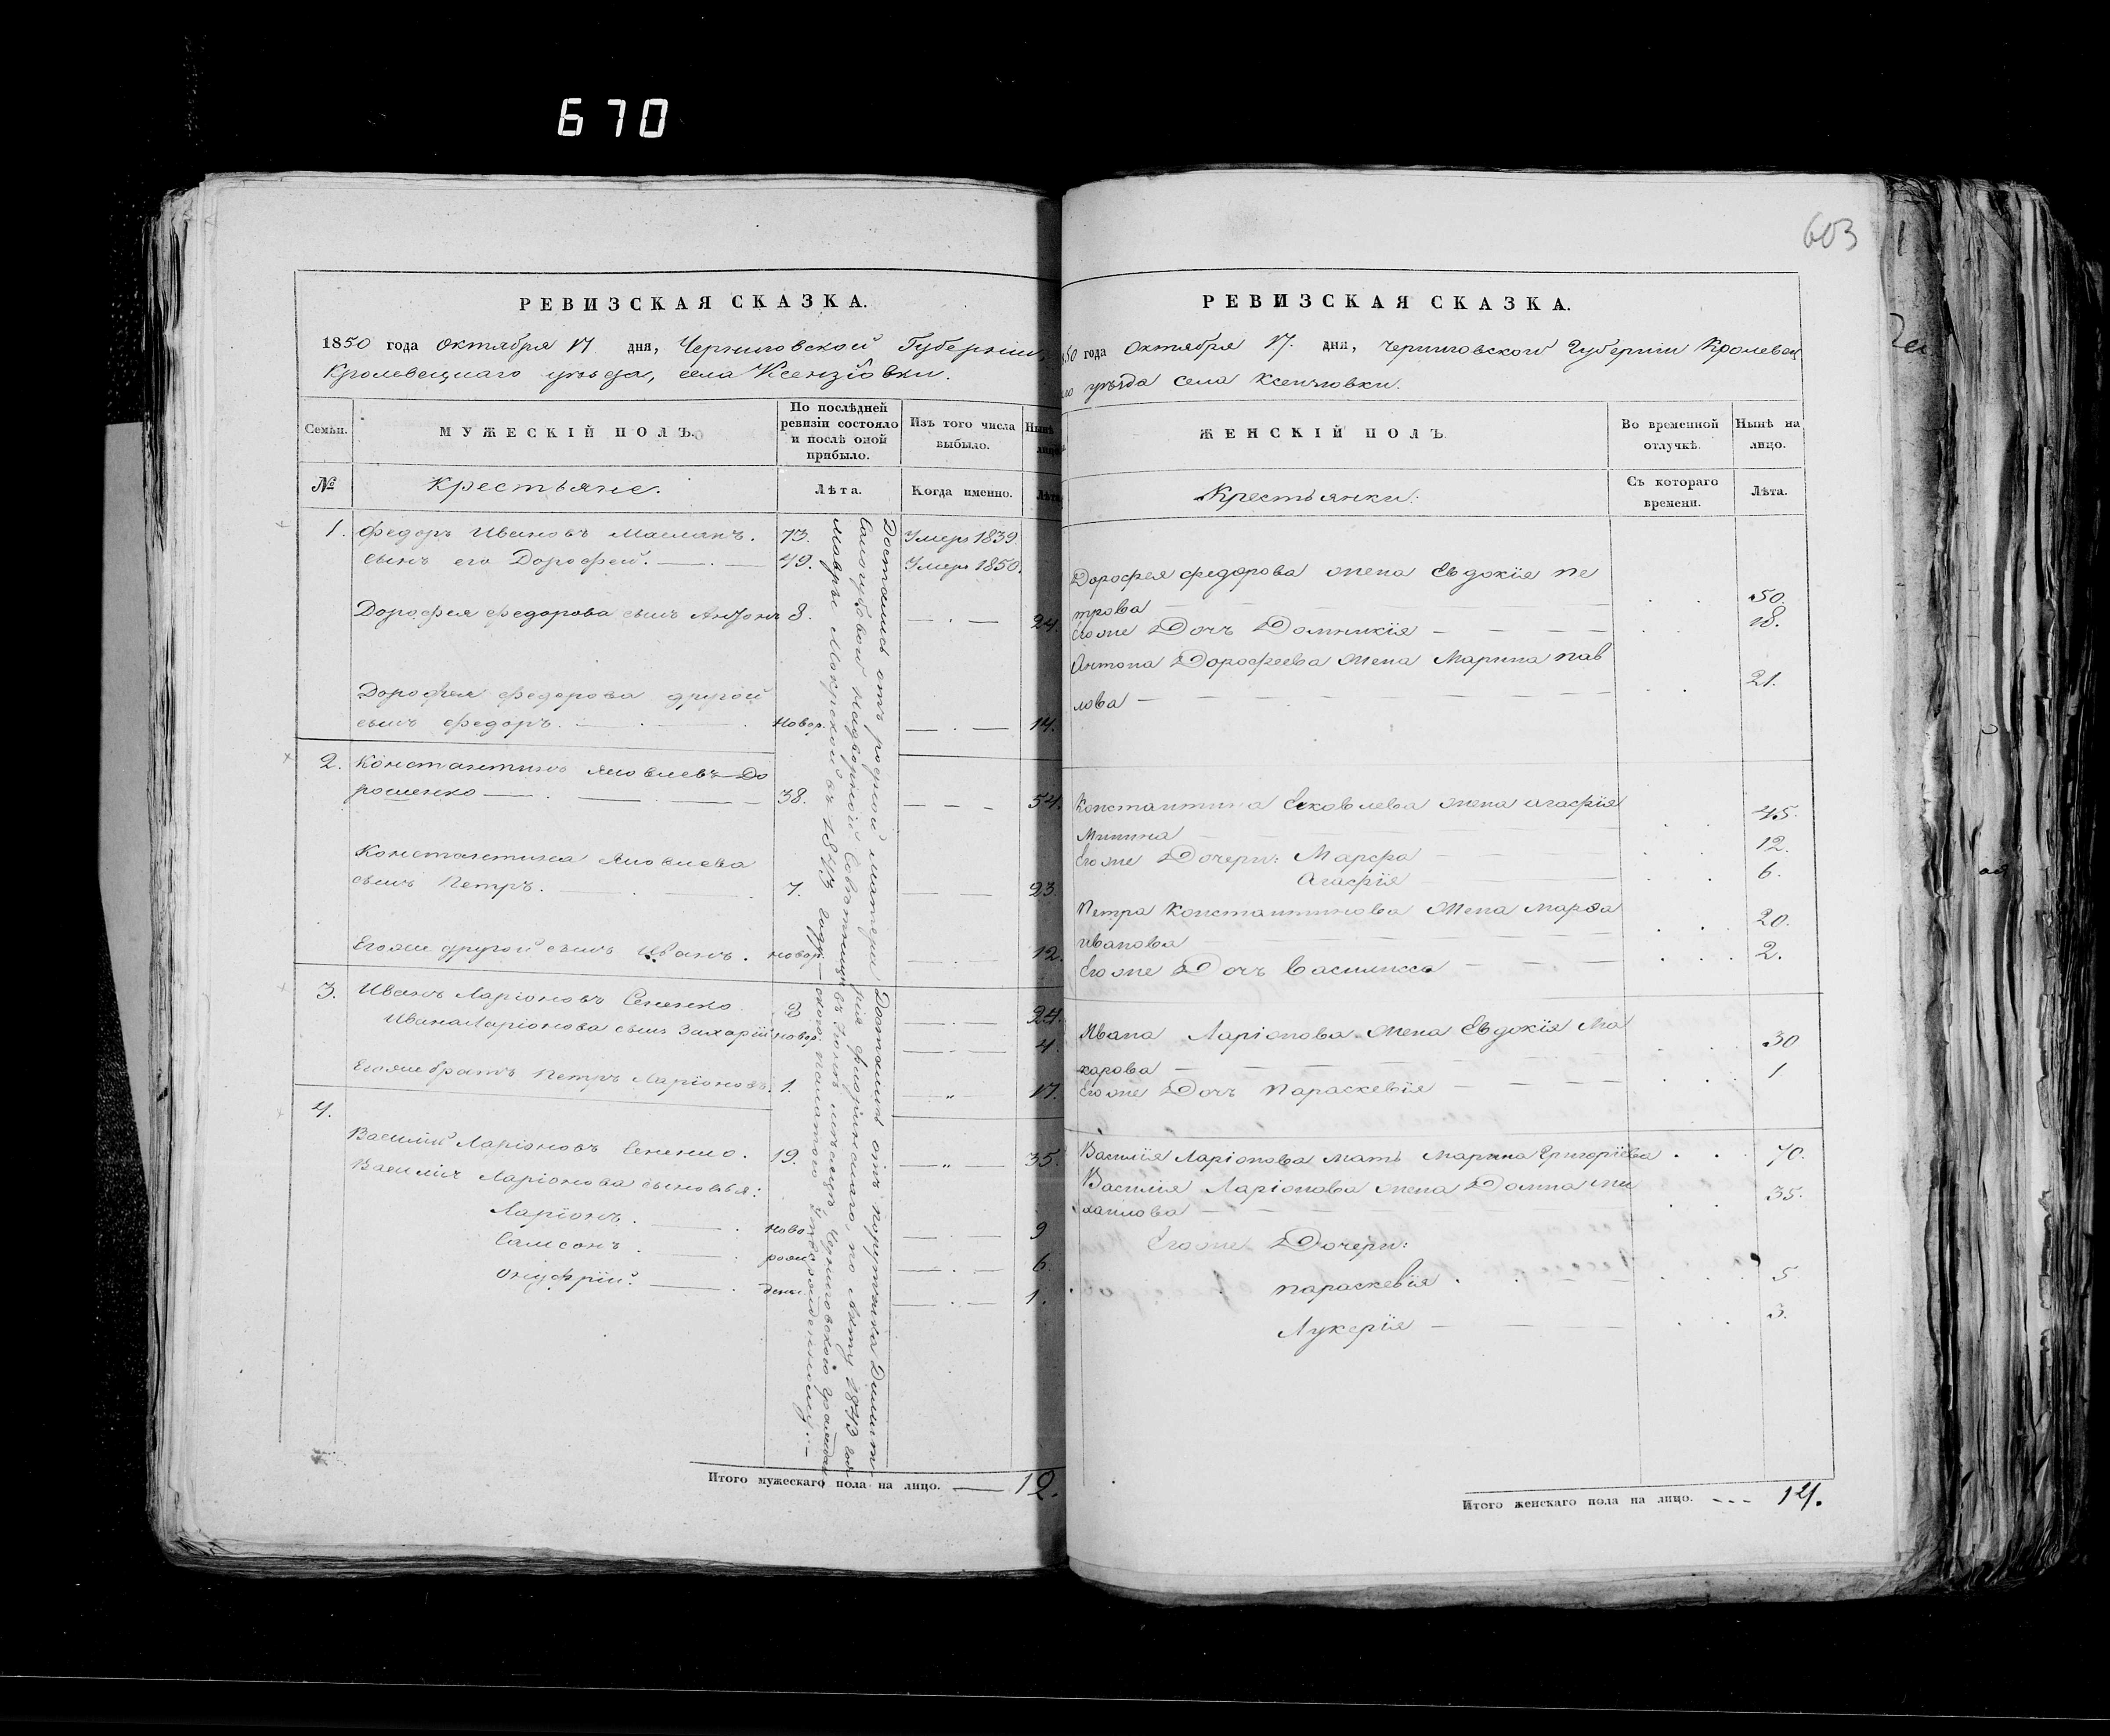 670
603
РЕВИЗСКАЯ СКАЗКА.
1850 года Октября 17 дня, Черниговской Губерніи,
Кролевецкаго уѣзда, села Ксензовки.
Семьи.
МУЖЕСКІЙ ПОЛЪ.
По послѣдней
ревизіи состояло
и послѣ оной
прибыло.
Изъ того числа
выбыло.
Нынѣ
лицо
№
Крестьяне.
Лѣта.
Когда именно.
Лѣта
1. Федоръ Ивановъ Маслакъ. 73. Умеръ 1839
сынъ его Дорофей. 49. Умеръ 1850.
Дорофея Федорова сынъ Антонъ 8. 24.
Дорофея Федорова другой
сынъ Федоръ. новор. 14.
2. Константинъ Яковлевъ До
рошенко 38. 54.
Константина Яковлева
сынъ Петръ. 7. 23.
Егоже другой сынъ Иванъ. новор. 12.
3. Иванъ Ларіоновъ Сененко 8 24.
Ивана Ларіонова сынъ Захарій новор. 4.
Егоже братъ Петръ Ларіоновъ. 1. 17.
4.
Василій Ларіоновъ Сененко. 19. 35.
Василія Ларіонова сыновья:
Ларіонъ. ново 9
Самсонъ. рож 6.
Онуфрій. дены 1.
Достались отъ родной матери
надворной Совѣтницы
Мавры Макрской въ 1843 году
Достались отъ порутчика Димит-
рія по Акту 1843 года
въ Іюнѣ мѣсяцѣ Черниговскою граждан
скою палатою утвержденному.
Итого мужескаго пола на лицо. 12.
РЕВИЗСКАЯ СКАЗКА.
50 года Октября 17. дня, Черниговской Губерніи Кролевец
го уѣзда села Ксензовки.
ЖЕНСКІЙ ПОЛЪ
Во временной
отлучкѣ.
Нынѣ на
лицо.
Крестьянки:
Съ котораго
времени.
Лѣта.
Дорофея Федорова жена Евдокія Пе
трова 50.
Егоже Дочь Домникія 18.
Антона Дорофеева жена Марина Пав
лова 21.
Константина Яковлева жена Агафія
Минина 45.
Егоже Дочери: Марфа 12.
Агафія 6.
Петра Константинова жена Марфа
Иванова 20.
Егоже Дочь Василисса 2.
Ивана Ларіонова жена Евдокія Ма
карова 30
Егоже Дочь Параскевія 1
Василія Ларіонова мать Марина Григоріева 70.
Василія Ларіонова жена Домна Ми
хаилова 35.
Егоже Дочери:
Параскевія 5
Лукерія 3.
Итого женскаго пола на лицо. 14.